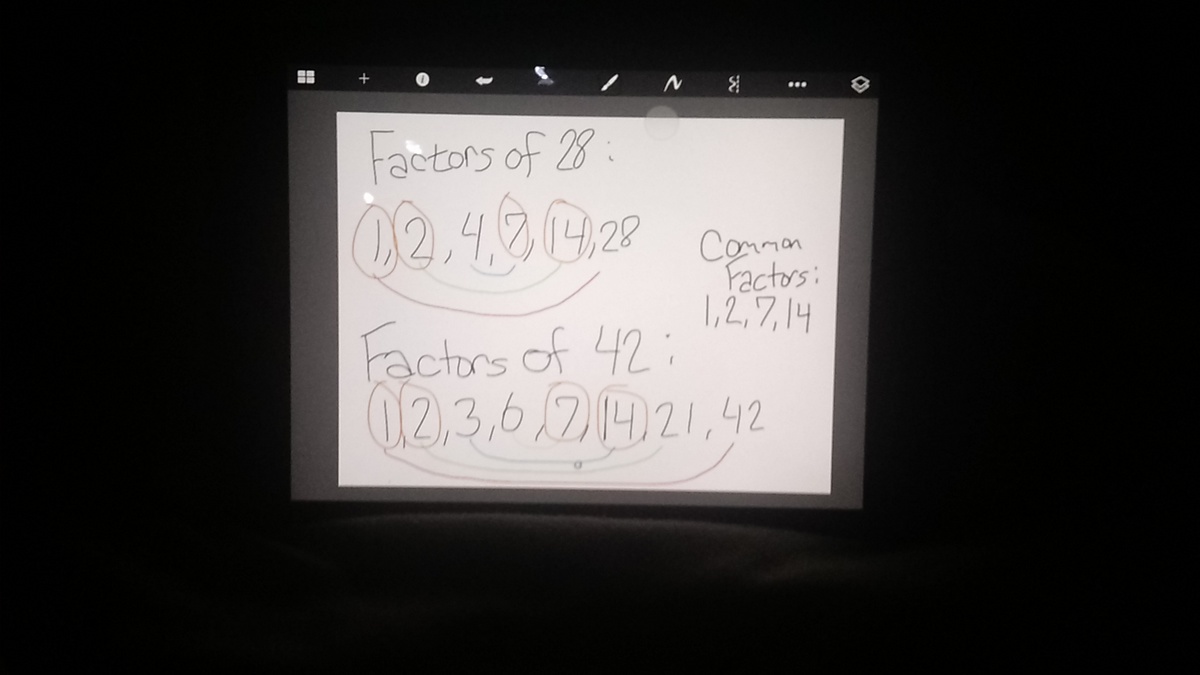 Factors of 28:
1, 2, 4, 7, 14, 28
Common
Factors:
1, 2, 7, 14
Factors of 42:
1, 2, 3, 6, 7, 14, 21, 42